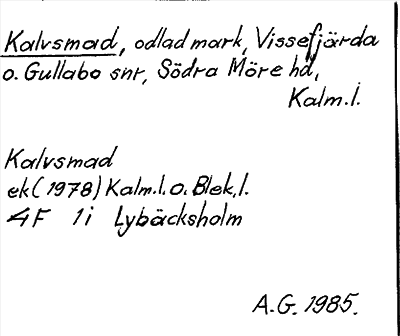 Kalvsmad, odlad mark, Vissefjärda
o. Gullabo snr, Södra Möre hd,
Kalm.l.
Kalvsmad
ek (1978) Kalm.l.o. Blek.l.
4F 1i Lybäcksholm
A.G. 1985.